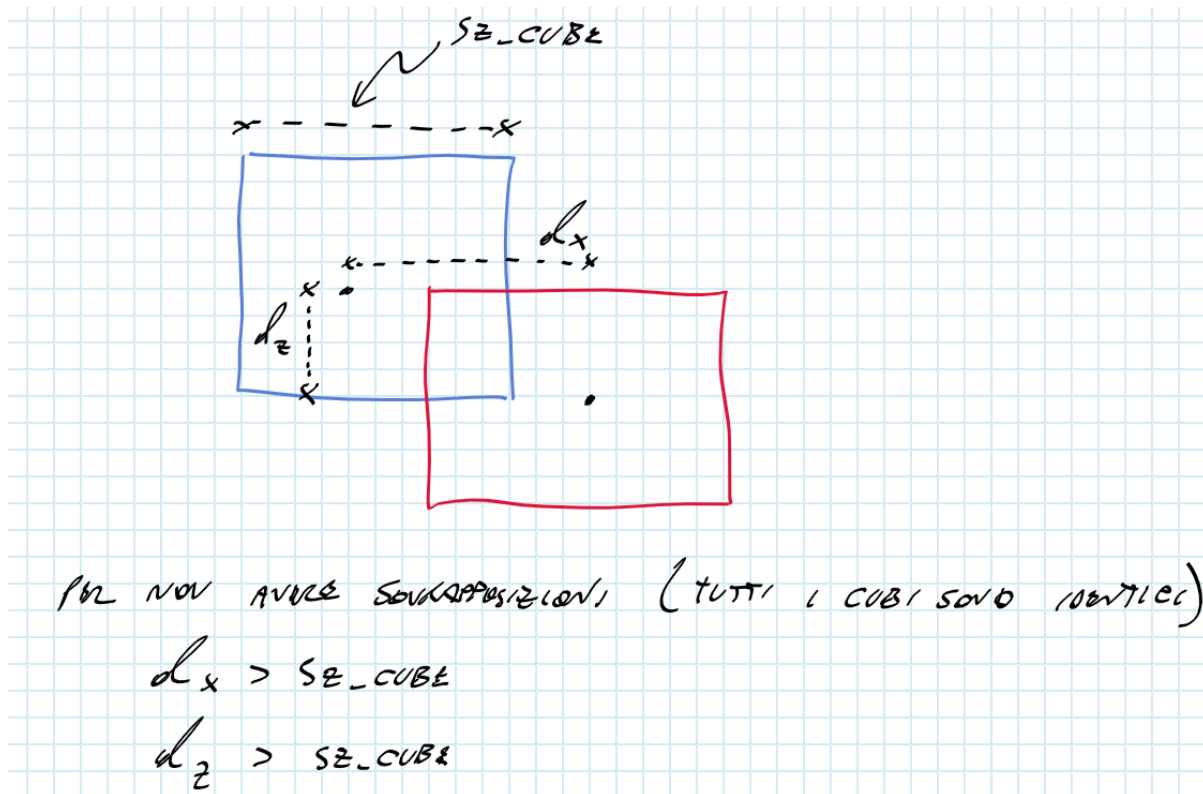 SZ_CUBE
dx
dz
PER NON AVERE SOVRAPPOSIZIONI (TUTTI I CUBI SONO IDENTICI)
dx > SZ_CUBE
dz > SZ_CUBE